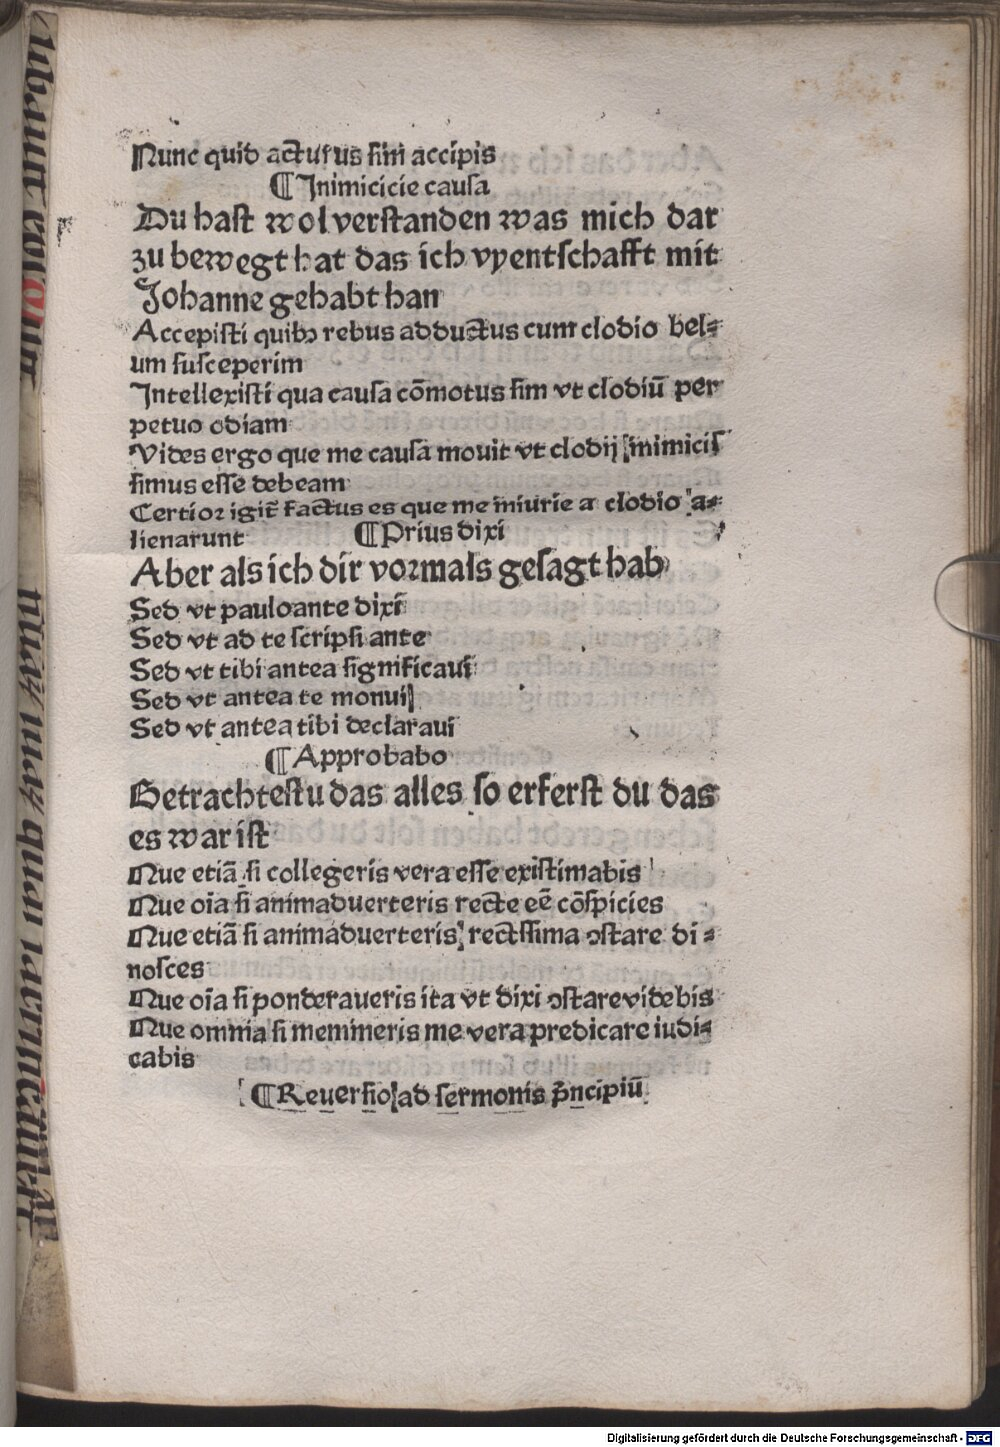 Nunc quid acturus sim accipis
¶ Inimicicie causa
Du hast wol verstanden was mich dar
zu bewegt hat das ich vyentschafft mit
Johanne gehabt han
Accepisti quibꝫ rebus adductus cum clodio bel⸗
um susceperim
Intellexisti qua causa cōmotus sim vt clodiū per
petuo odiam
Vides ergo que me causa movit vt clodij inimicis
simus esse debeam
Certior igit̄ factus es que me iniurie a clodio a⸗
lienarunt ¶ Prius dixi
Aber als ich dir vormals gesagt hab
Sed vt pauloante dixi
Sed vt ad te scripsi ante
Sed vt tibi antea significaui
Sed vt antea te monui
Sed vt antea tibi declaraui
¶ Approbabo
Betrachtestu das alles so erferst du das
es war ist
Nue etiā si collegeris vera esse existimabis
Nue oīa si animaduerteris recte eē cōspicies
Nue etiā si animaduerteris rectssima ↄstare di⸗
nosces
Nue oīa si ponderaueris ita vt dixi ↄstare videbis
Nue omnia si memineris me vera predicare iudi⸗
cabis
¶ Reuersio ad sermonis p̄ncipiū
Digitalisierung gefördert durch die Deutsche Forschungsgemeinschaft - DFG